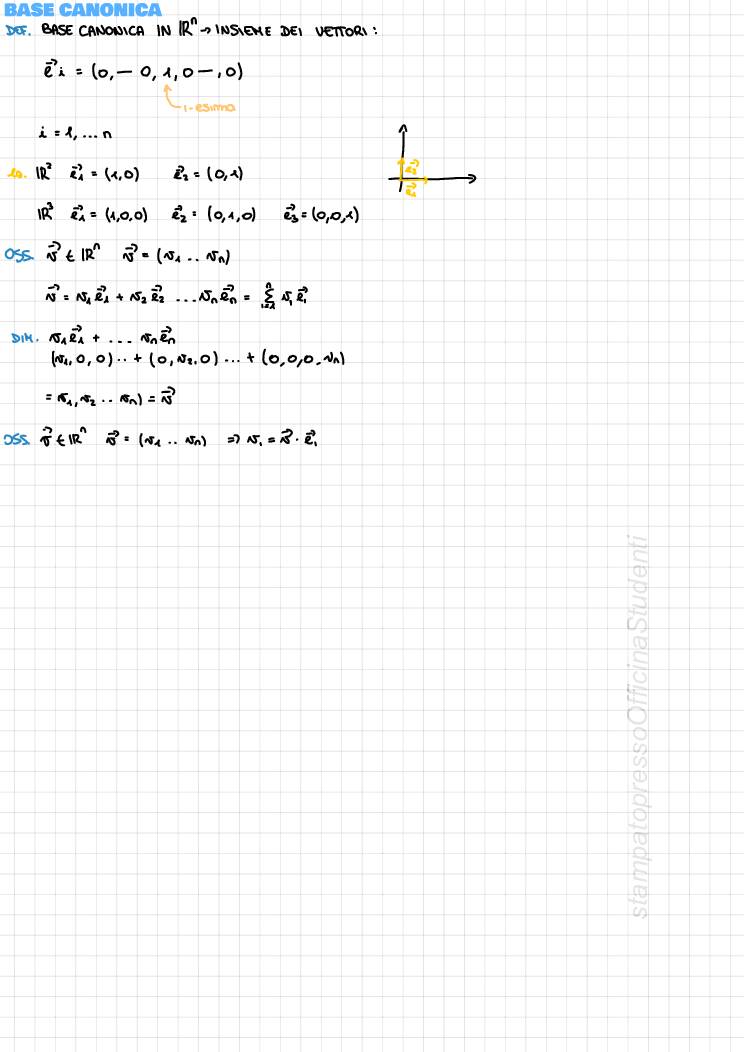 BASE CANONICA
DEF. BASE CANONICA IN ℝⁿ → INSIEME DEI VETTORI:
e⃗i = (0, — 0, 1, 0 — , 0)
i-esima
i = 1, ... n
es. ℝ² e⃗₁ = (1,0) e⃗₂ = (0,1)
e⃗₂
e⃗₁
ℝ³ e⃗₁ = (1,0,0) e⃗₂ = (0,1,0) e⃗₃ = (0,0,1)
OSS. v⃗ ∈ ℝⁿ v⃗ = (v₁ .. vₙ)
v⃗ = v₁e⃗₁ + v₂e⃗₂ ... vₙe⃗ₙ = Σⁿᵢ₌₁ vᵢe⃗ᵢ
DIM. v₁e⃗₁ + ... vₙe⃗ₙ
(v₁, 0, 0) .. + (0, v₂, 0) ... + (0, 0, 0.. vₙ)
= v₁, v₂ .. vₙ) = v⃗
OSS. v⃗ ∈ ℝⁿ v⃗ = (v₁ .. vₙ) => vᵢ = v⃗ · e⃗ᵢ
stampatopressoOfficinaStudenti